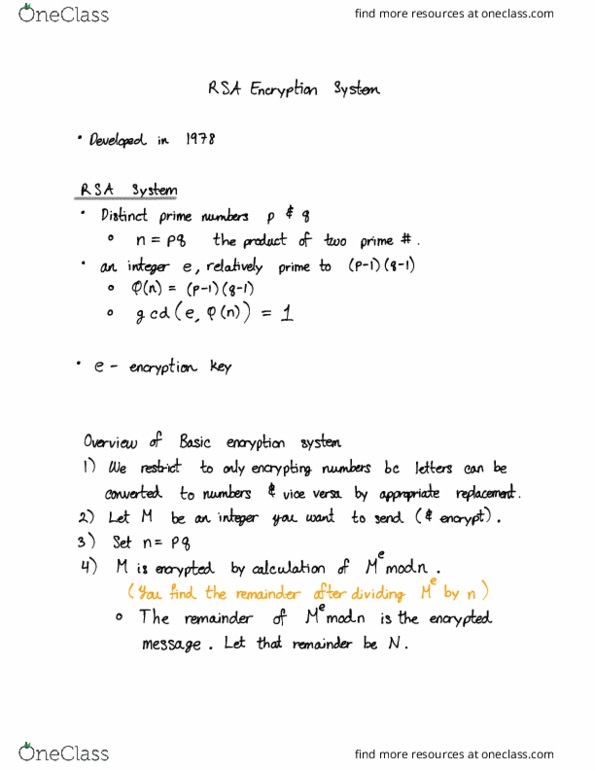 OneClass
find more resources at oneclass.com
RSA Encryption System
• Developed in 1978
RSA System
• Distinct prime numbers p & q
o n = pq the product of two prime #.
• an integer e, relatively prime to (p-1)(q-1)
o φ(n) = (p-1)(q-1)
o gcd(e, φ(n)) = 1
• e - encryption key
Overview of Basic encryption system
1) We restrict to only encrypting numbers bc letters can be
converted to numbers & vice versa by appropriate replacement.
2) Let M be an integer you want to send (& encrypt).
3) Set n = pq
4) M is encrypted by calculation of M^e mod n.
(You find the remainder after dividing M^e by n)
o The remainder of M^e mod n is the encrypted
message. Let that remainder be N.
OneClass
find more resources at oneclass.com